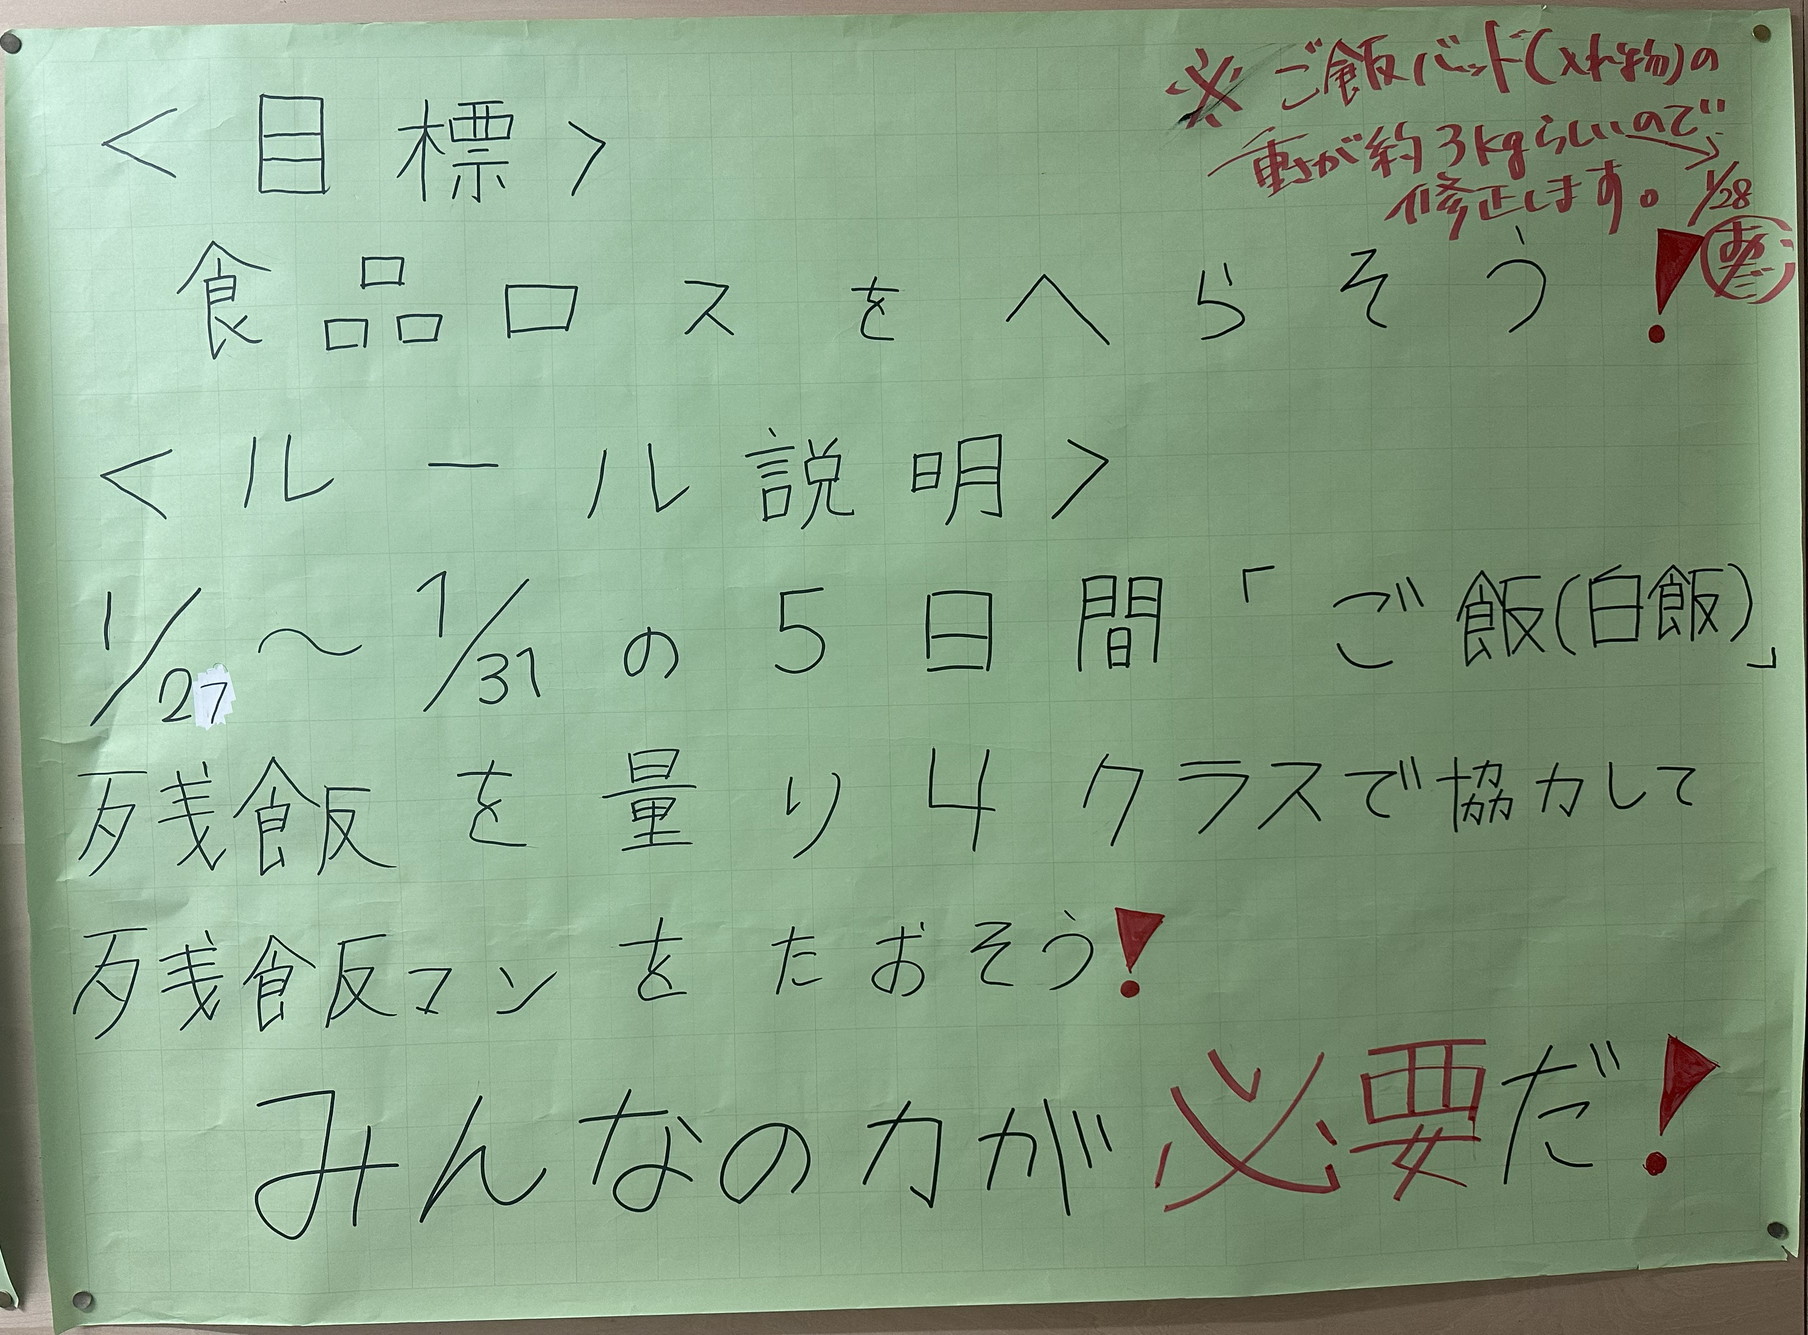 ※ご飯バッド(入れ物)の
重さが約3kgらしいので
修正します。1/28
<目標>
食品ロスをへらそう!
<ルール説明>
1/27〜1/31の5日間「ご飯(白飯)」
残飯を量り4クラスで協力して
残飯マンをたおそう!
みんなの力が必要だ!